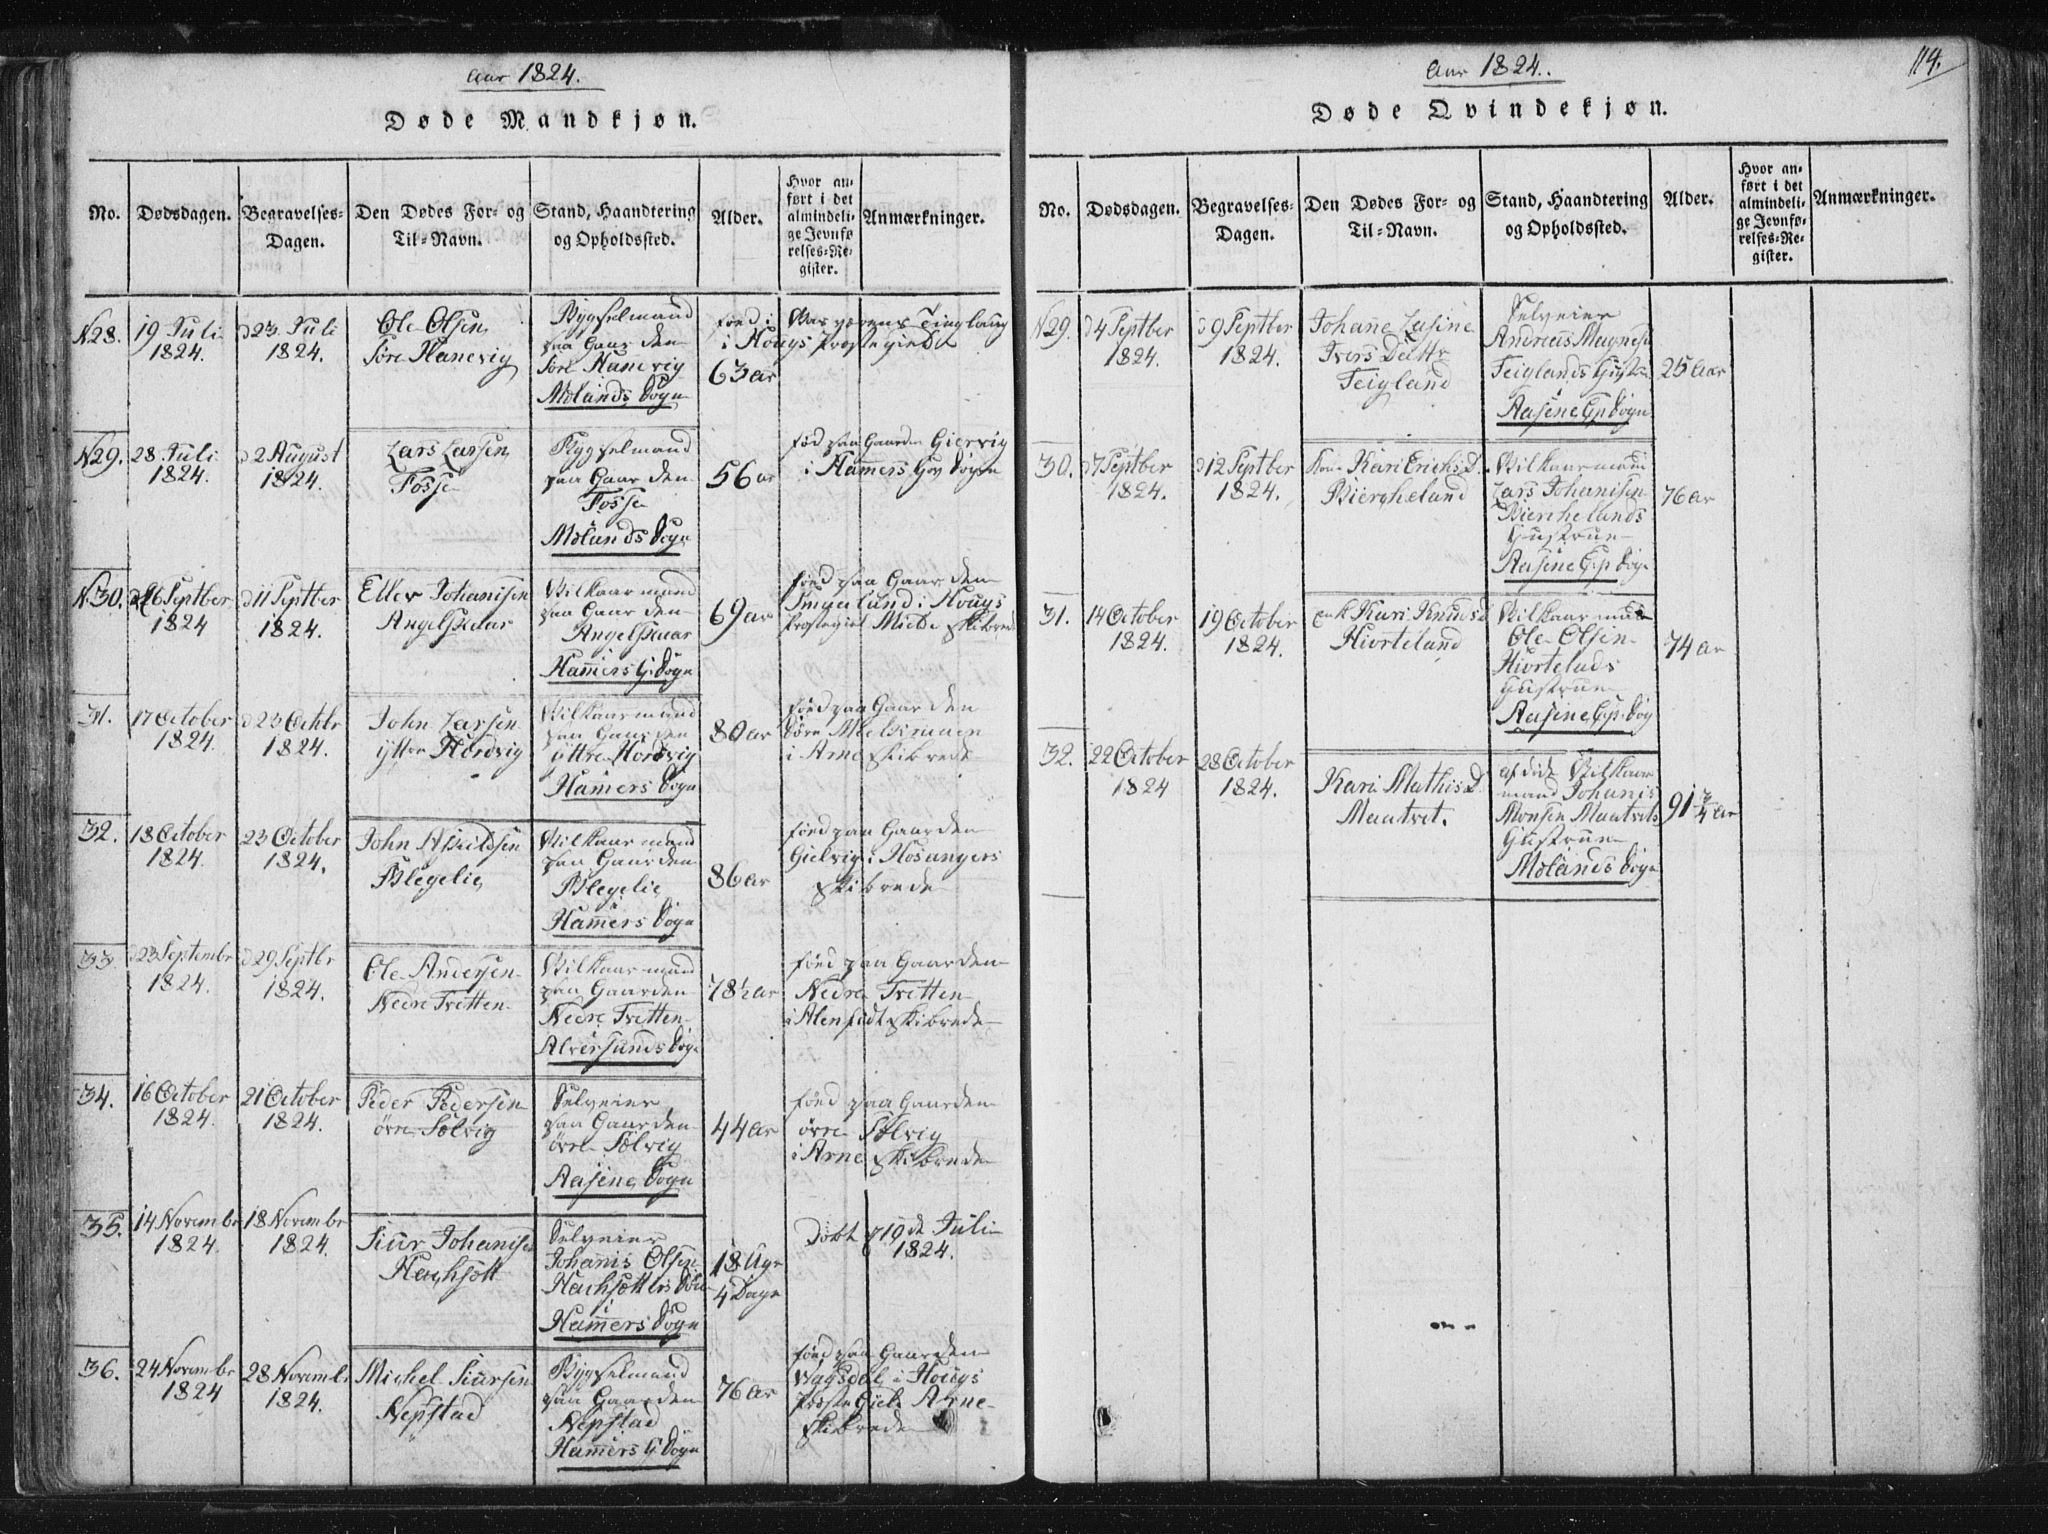 Aar 1824.
Døde Mandkjøn.
No.
Dødsdagen.
Begravelses-
Dagen.
Den Dødes For- og
Til-Navn.
Stand, Haandtering
og Opholdssted.
Alder.
Hvor an-
ført i det
almindeli-
ge Jevnfø-
relses-Re-
gister.
Anmærkninger.
N28.
19 Juli
1824.
d23 Juli
1824.
Ole Olsen
Søre Hanevig
Bygselmand
paa Gaarden
Søre Hanevig
Mølands Sogn
63 ar
føed i
i Hougs Prostegield
N29.
28 Juli
1824.
d2 August
1824.
Lars Larsen
Fosse
Bygselmand
paa Gaarden
Fosse
Mølands Sogn
56 ar
fød paa Gaarden Giervig
i Hamers Sogn
N30.
6 Septber
1824
d11 Septber
1824.
Eller Johanisen
Angelskaar
Vilkaarmand
paa Gaarden
Angelskaar
Hamers G. Sogn
69 ar
føed paa Gaarden
i Hougs
31.
17 October
1824.
d23 Octbr
1824.
John Larsen
Yttre Hordvig
Vilkaarmand
paa Gaarden
Yttre Hordvig
Hamers Sogn
80 ar
føed paa Gaarden
i Arne Skibrede
32.
18 October
1824.
23 October
1824.
John
Blegelie
Vilkaarmand
paa Gaarden
Blegelie
i
Hamers Sogn
86 ar
føed paa Gaarden
Gielvig i Hosangers
Skibrede
33
d23 Septembr
1824.
d29 Septbr
1824.
Ole Andersen
Nedre Tvetten
Vilkaarmand
paa Gaarden
Nedre Tvetten
Alversunds Sogn
78½ ar
føed paa Gaarden
Nedre Tvetten
i Alenfidt Skibrede
34.
16 October
1824.
21 October
1824.
Peder Pedersen
øvre Sælvig
Selveier
paa Gaarden
øvre Sælvig
Aasene Sogn
44 ar
føed paa Gaarden
øvre Sælvig
i Arne Skibrede
35.
14 Novembr
1824.
18 Novembr
1824.
Siur Johanisen
Hachsott
Selveier
Johanis Olsen
Hachsotters Søn
i
Hamers Sogn
18 Uger
4 Dage
Døbt d19de Juli
1824.
36.
24 Novembr
1824
28 Novembr
1824.
Michel Siursen
Nepstad
Bygselmand
paa Gaarden
Nepstad
Hamers G. Sogn
76 ar
føed paa Gaarden
Vagsdal i Hougs
Prostegield Arne
Skibrede
Aar 1824.
114.
Døde Qvindekjøn.
No.
Dødsdagen.
Begravelses-
Dagen.
Den Dødes For- og
Til-Navn.
Stand, Haandtering
og Opholdssted.
Alder.
Hvor an-
ført i det
almindeli-
ge Jevnfø-
relses-Re-
gister.
Anmærkninger.
N29.
d4 Septber
1824.
d9 Septber
1824.
Johane Lasine
Ivers Datter
Teigland
Selveier
Andreas Magnesen
Teiglands Hustru
i
Aasene Gp. Sogn
25 aar
30.
d7 Septber
1824.
d12 Septber
1824.
Kone Kari Erichsd
Biergheland
Vilkaarmand
Lars Johanisen
Bierghelands
Hustrue
Aasene Gp Sogn
76 ar
31.
14 October
1824.
19 October
1824.
Enk Kari Knudsd
Hiorteland
Vilkaarmand
Ole Olsen
Hiortelads
Hustrue
Aasene Gp. Sogn
74 ar
32.
22 October
1824
28 October
1824.
Kari Mathisd
Maatvet.
afdøde Vilkaar
mand Johanis
Monsen Maatvets
Hustrue
Mølands Sogn
91¾ ar